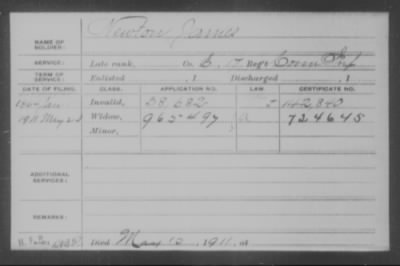 Newton James
NAME OF SOLDIER:
SERVICE: Late rank, Co. B, 17 Reg't Conn Inf
TERM OF SERVICE: Enlisted , 1 Discharged , 1
DATE OF FILING. CLASS. APPLICATION NO. LAW. CERTIFICATE NO.
Invalid, 58,682 142,840
1911 May Widow, 965497 724645
Minor,
ADDITIONAL SERVICES:
REMARKS:
Died May 12, 1911, at